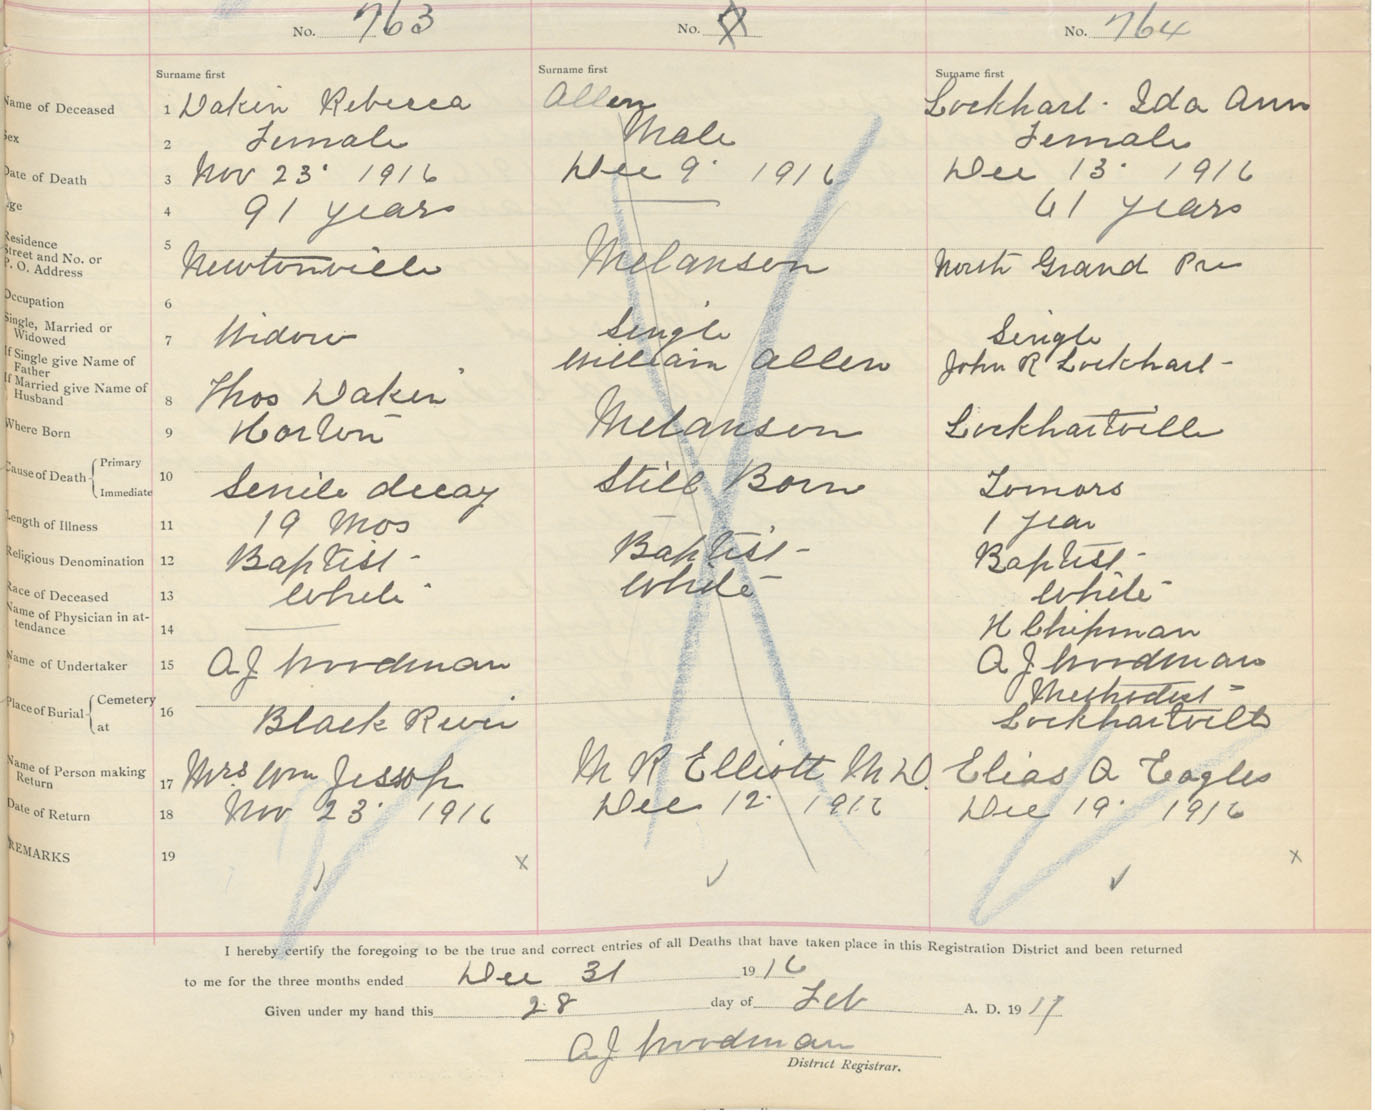 No. 763 No. X No. 764
Surname first Surname first Surname first
Name of Deceased 1 Dakin Rebecca Allen Lockhart Ida Ann
Sex 2 Female Male Female
Date of Death 3 Nov 23 1916 Dec 9 1916 Dec 13 1916
Age 4 91 years — 61 years
Residence
Street and No. or
P. O. Address 5 Newtonville Melanson North Grand Pre
Occupation 6
Single, Married or
Widowed 7 Widow Single Single
If Single give Name of
Father William Allen John R Lockhart
If Married give Name of
Husband 8 Thos Dakin
Where Born 9 Horton Melanson Lockhartville
Cause of Death { Primary
Immediate 10 Senile decay Still Born Tomors
Length of Illness 11 19 Mos — 1 year
Religious Denomination 12 Baptist Baptist Baptist
Race of Deceased 13 White White White
Name of Physician in at-
tendance 14 — H Chipman
Name of Undertaker 15 A J Woodman A J Woodman
Place of Burial { Cemetery Methodist
at 16 Black River Lockhartville
Name of Person making
Return 17 Mrs Wm Jessop M R Elliott M D. Elias A Eagles
Date of Return 18 Nov 23 1916 Dec 12 1916 Dec 19 1916
REMARKS 19 x x
I hereby certify the foregoing to be the true and correct entries of all Deaths that have taken place in this Registration District and been returned
to me for the three months ended Dec 31 1916
Given under my hand this 28 day of Feb A. D. 1917
A J Woodman
District Registrar.